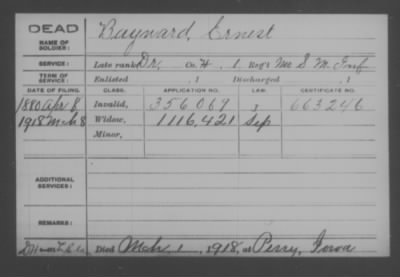 DEAD
NAME OF SOLDIER: Baynard, Ernest
SERVICE: Late rank Dr, Co. H, 1 Reg't Mo S. M. Inf
TERM OF SERVICE: Enlisted , 1 Discharged , 1
DATE OF FILING. CLASS. APPLICATION NO. LAW. CERTIFICATE NO.
1880 Apr 8, Invalid, 356,069 663246
1918 Mch 8 Widow, 1116,421 Sep
Minor,
ADDITIONAL SERVICES:
REMARKS:
Died Mch 1, 1918, at Perry, Iowa